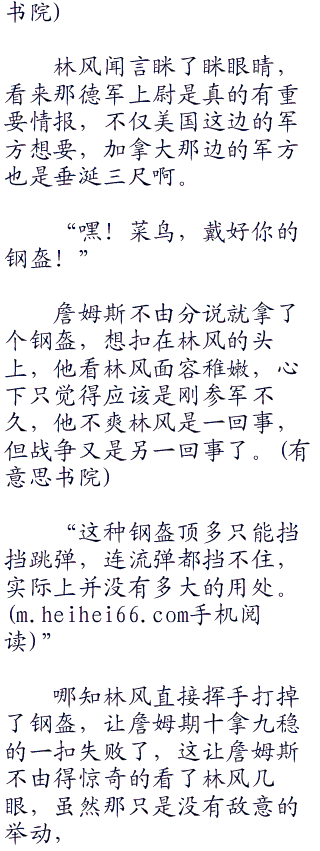 书院)
林风闻言眯了眯眼睛，
看来那德军上尉是真的有重
要情报，不仅美国这边的军
方想要，加拿大那边的军方
也是垂涎三尺啊。
“嘿！菜鸟，戴好你的
钢盔！”
詹姆斯不由分说就拿了
个钢盔，想扣在林风的头
上，他看林风面容稚嫩，心
下只觉得应该是刚参军不
久，他不爽林风是一回事，
但战争又是另一回事了。(有
意思书院)
“这种钢盔顶多只能挡
挡跳弹，连流弹都挡不住，
实际上并没有多大的用处。
(m.heihei66.com手机阅
读)”
哪知林风直接挥手打掉
了钢盔，让詹姆期十拿九稳
的一扣失败了，这让詹姆斯
不由得惊奇的看了林风几
眼，虽然那只是没有敌意的
举动，